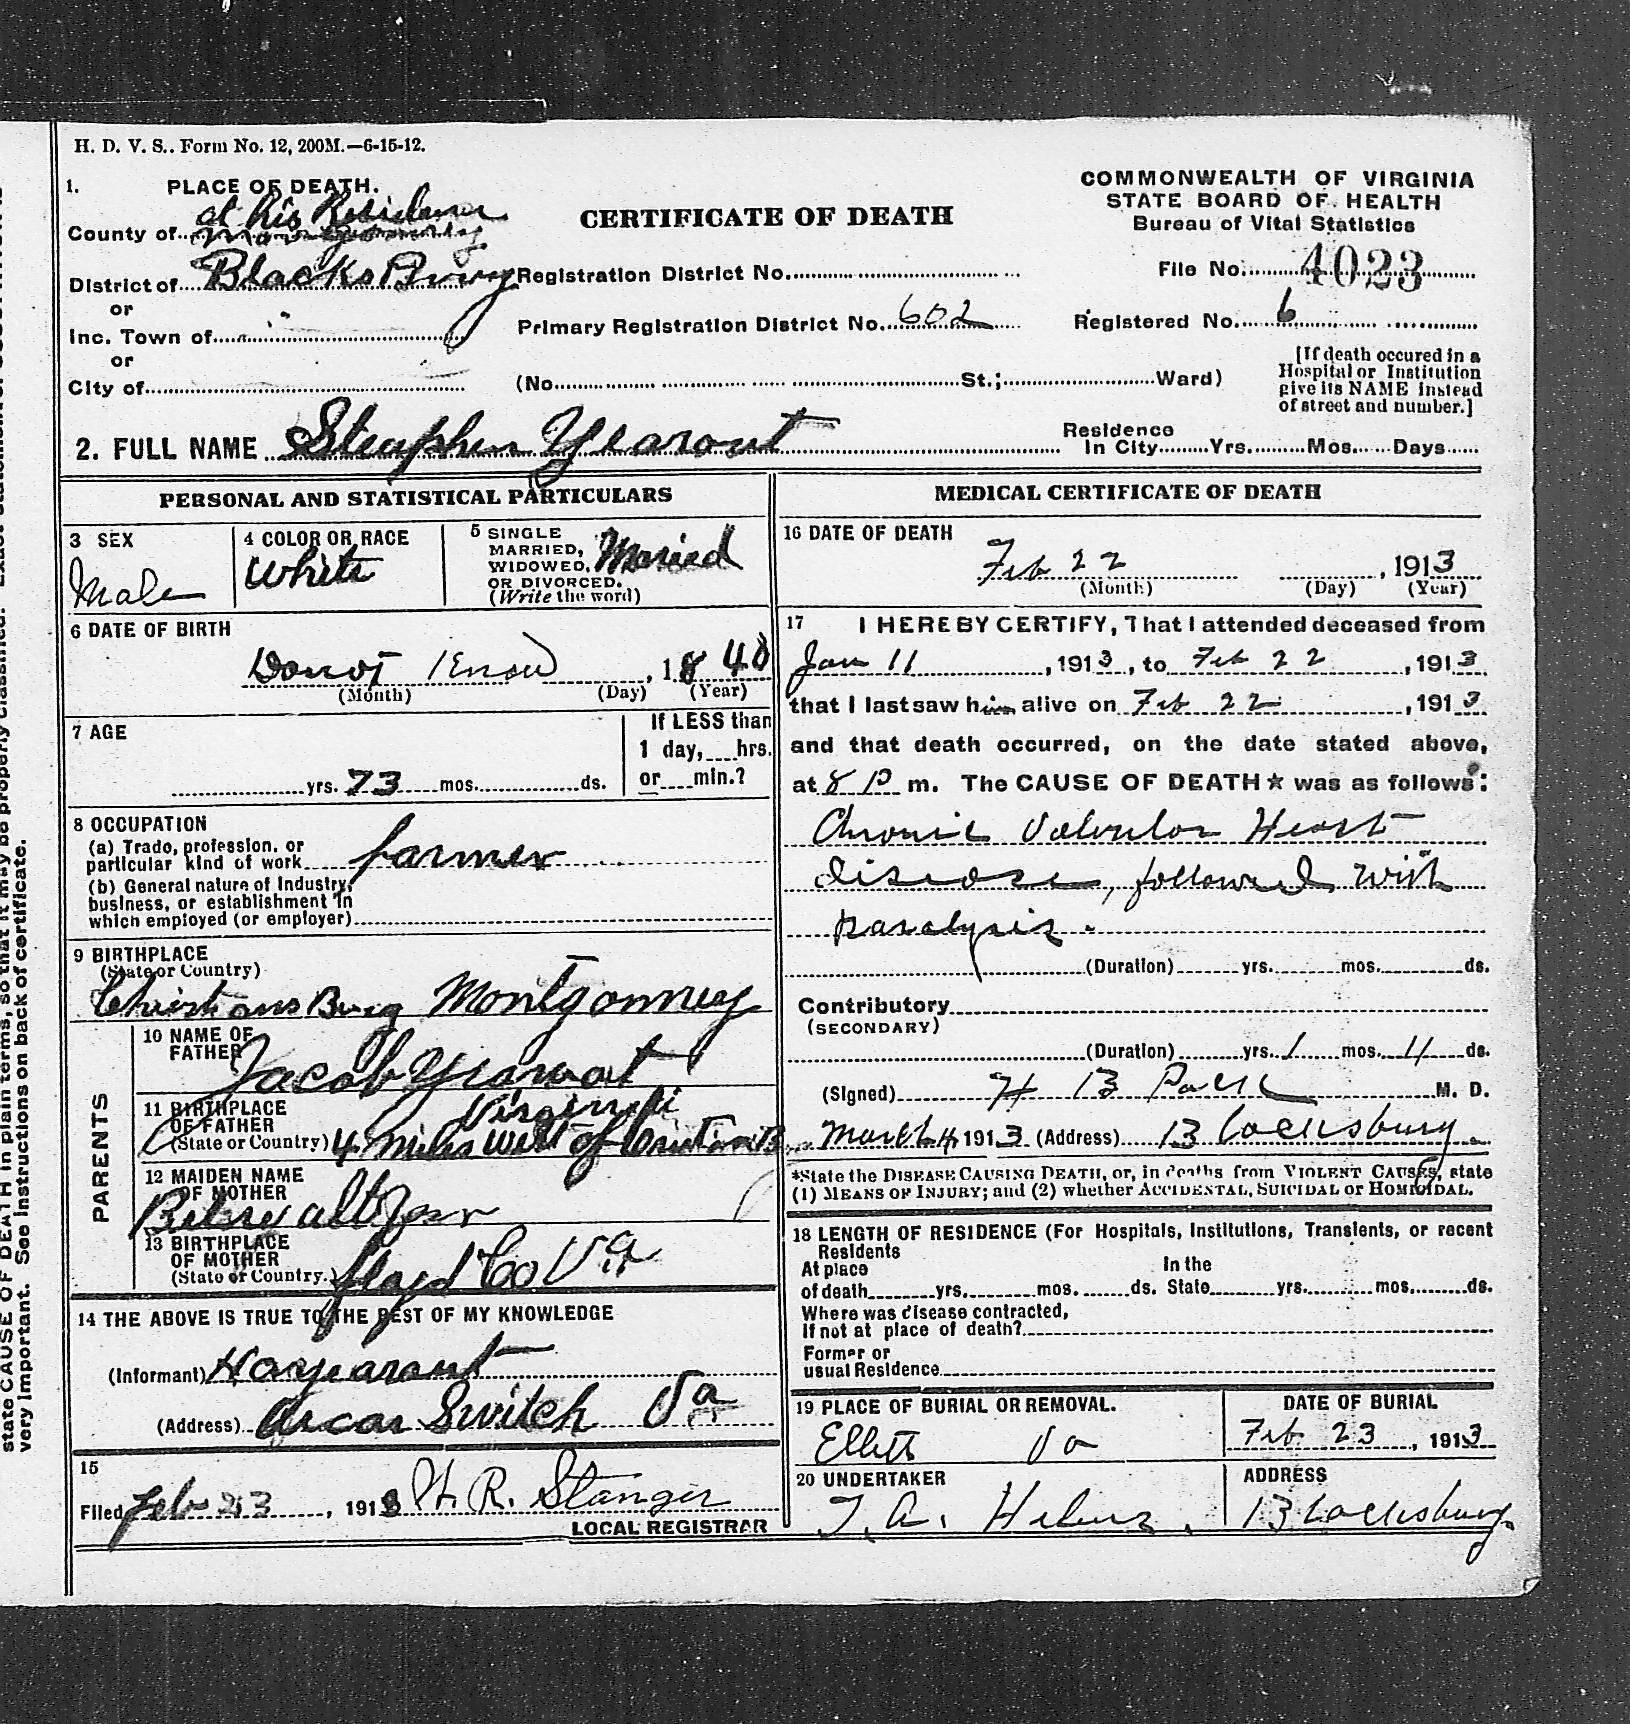 H. D. V. S.. Form No. 12, 200M.—6-15-12.
1. PLACE OF DEATH.
at his Residence
County of Montgomery
District of BlacksBurg
or
Inc. Town of
or
City of
CERTIFICATE OF DEATH
Registration District No.
Primary Registration District No. 602
(No. St.; Ward)
COMMONWEALTH OF VIRGINIA
STATE BOARD OF HEALTH
Bureau of Vital Statistics
File No. 4023
Registered No. 6
[If death occured in a
Hospital or Institution
give its NAME instead
of street and number.]
2. FULL NAME Steaphen Yearout
Residence
In City Yrs. Mos. Days
PERSONAL AND STATISTICAL PARTICULARS
3 SEX
Male
4 COLOR OR RACE
White
5 SINGLE
MARRIED,
WIDOWED,
OR DIVORCED.
(Write the word)
Maried
6 DATE OF BIRTH
Donot Know, 1840
(Month) (Day) (Year)
7 AGE
yrs. 73 mos. ds.
If LESS than
1 day, hrs.
or min.?
8 OCCUPATION
(a) Trade, profession, or
particular kind of work farmer
(b) General nature of Industry,
business, or establishment in
which employed (or employer)
9 BIRTHPLACE
(State or Country)
ChristiansBurg Montgomrey
PARENTS
10 NAME OF
FATHER
Jacob Yearout
11 BIRTHPLACE
OF FATHER
(State or Country)
4 miles West of
12 MAIDEN NAME
OF MOTHER
13 BIRTHPLACE
OF MOTHER
(State or Country.) floyd Co Va
14 THE ABOVE IS TRUE TO THE BEST OF MY KNOWLEDGE
(Informant) Yearout
(Address) Switch Va
15
Filed Feb 23, 1913 H. R. Stanger
LOCAL REGISTRAR
MEDICAL CERTIFICATE OF DEATH
16 DATE OF DEATH
Feb 22, 1913
(Month) (Day) (Year)
17 I HEREBY CERTIFY, That I attended deceased from
Jan 11, 1913, to Feb 22, 1913
that I last saw him alive on Feb 22, 1913
and that death occurred, on the date stated above,
at 8 P m. The CAUSE OF DEATH* was as follows:
Chronic Valvular Heart
disease, followed with
paralysis.
(Duration) yrs. mos. ds.
Contributory
(SECONDARY)
(Duration) yrs. 1 mos. 11 ds.
(Signed) H B M. D.
March 4 1913 (Address) Blacksburg
*State the DISEASE CAUSING DEATH, or, in deaths from VIOLENT CAUSES, state
(1) MEANS OF INJURY; and (2) whether ACCIDENTAL, SUICIDAL or HOMICIDAL.
18 LENGTH OF RESIDENCE (For Hospitals, Institutions, Transients, or recent
Residents
At place
of death yrs. mos. ds.
In the
State yrs. mos. ds.
Where was disease contracted,
If not at place of death?
Former or
usual Residence
19 PLACE OF BURIAL OR REMOVAL.
Ellett Va
DATE OF BURIAL
Feb 23, 1913
20 UNDERTAKER
T. A. Helms.
ADDRESS
Blacksburg.
state CAUSE OF DEATH in plain terms, so that it may be properly classified.
very important. See instructions on back of certificate.